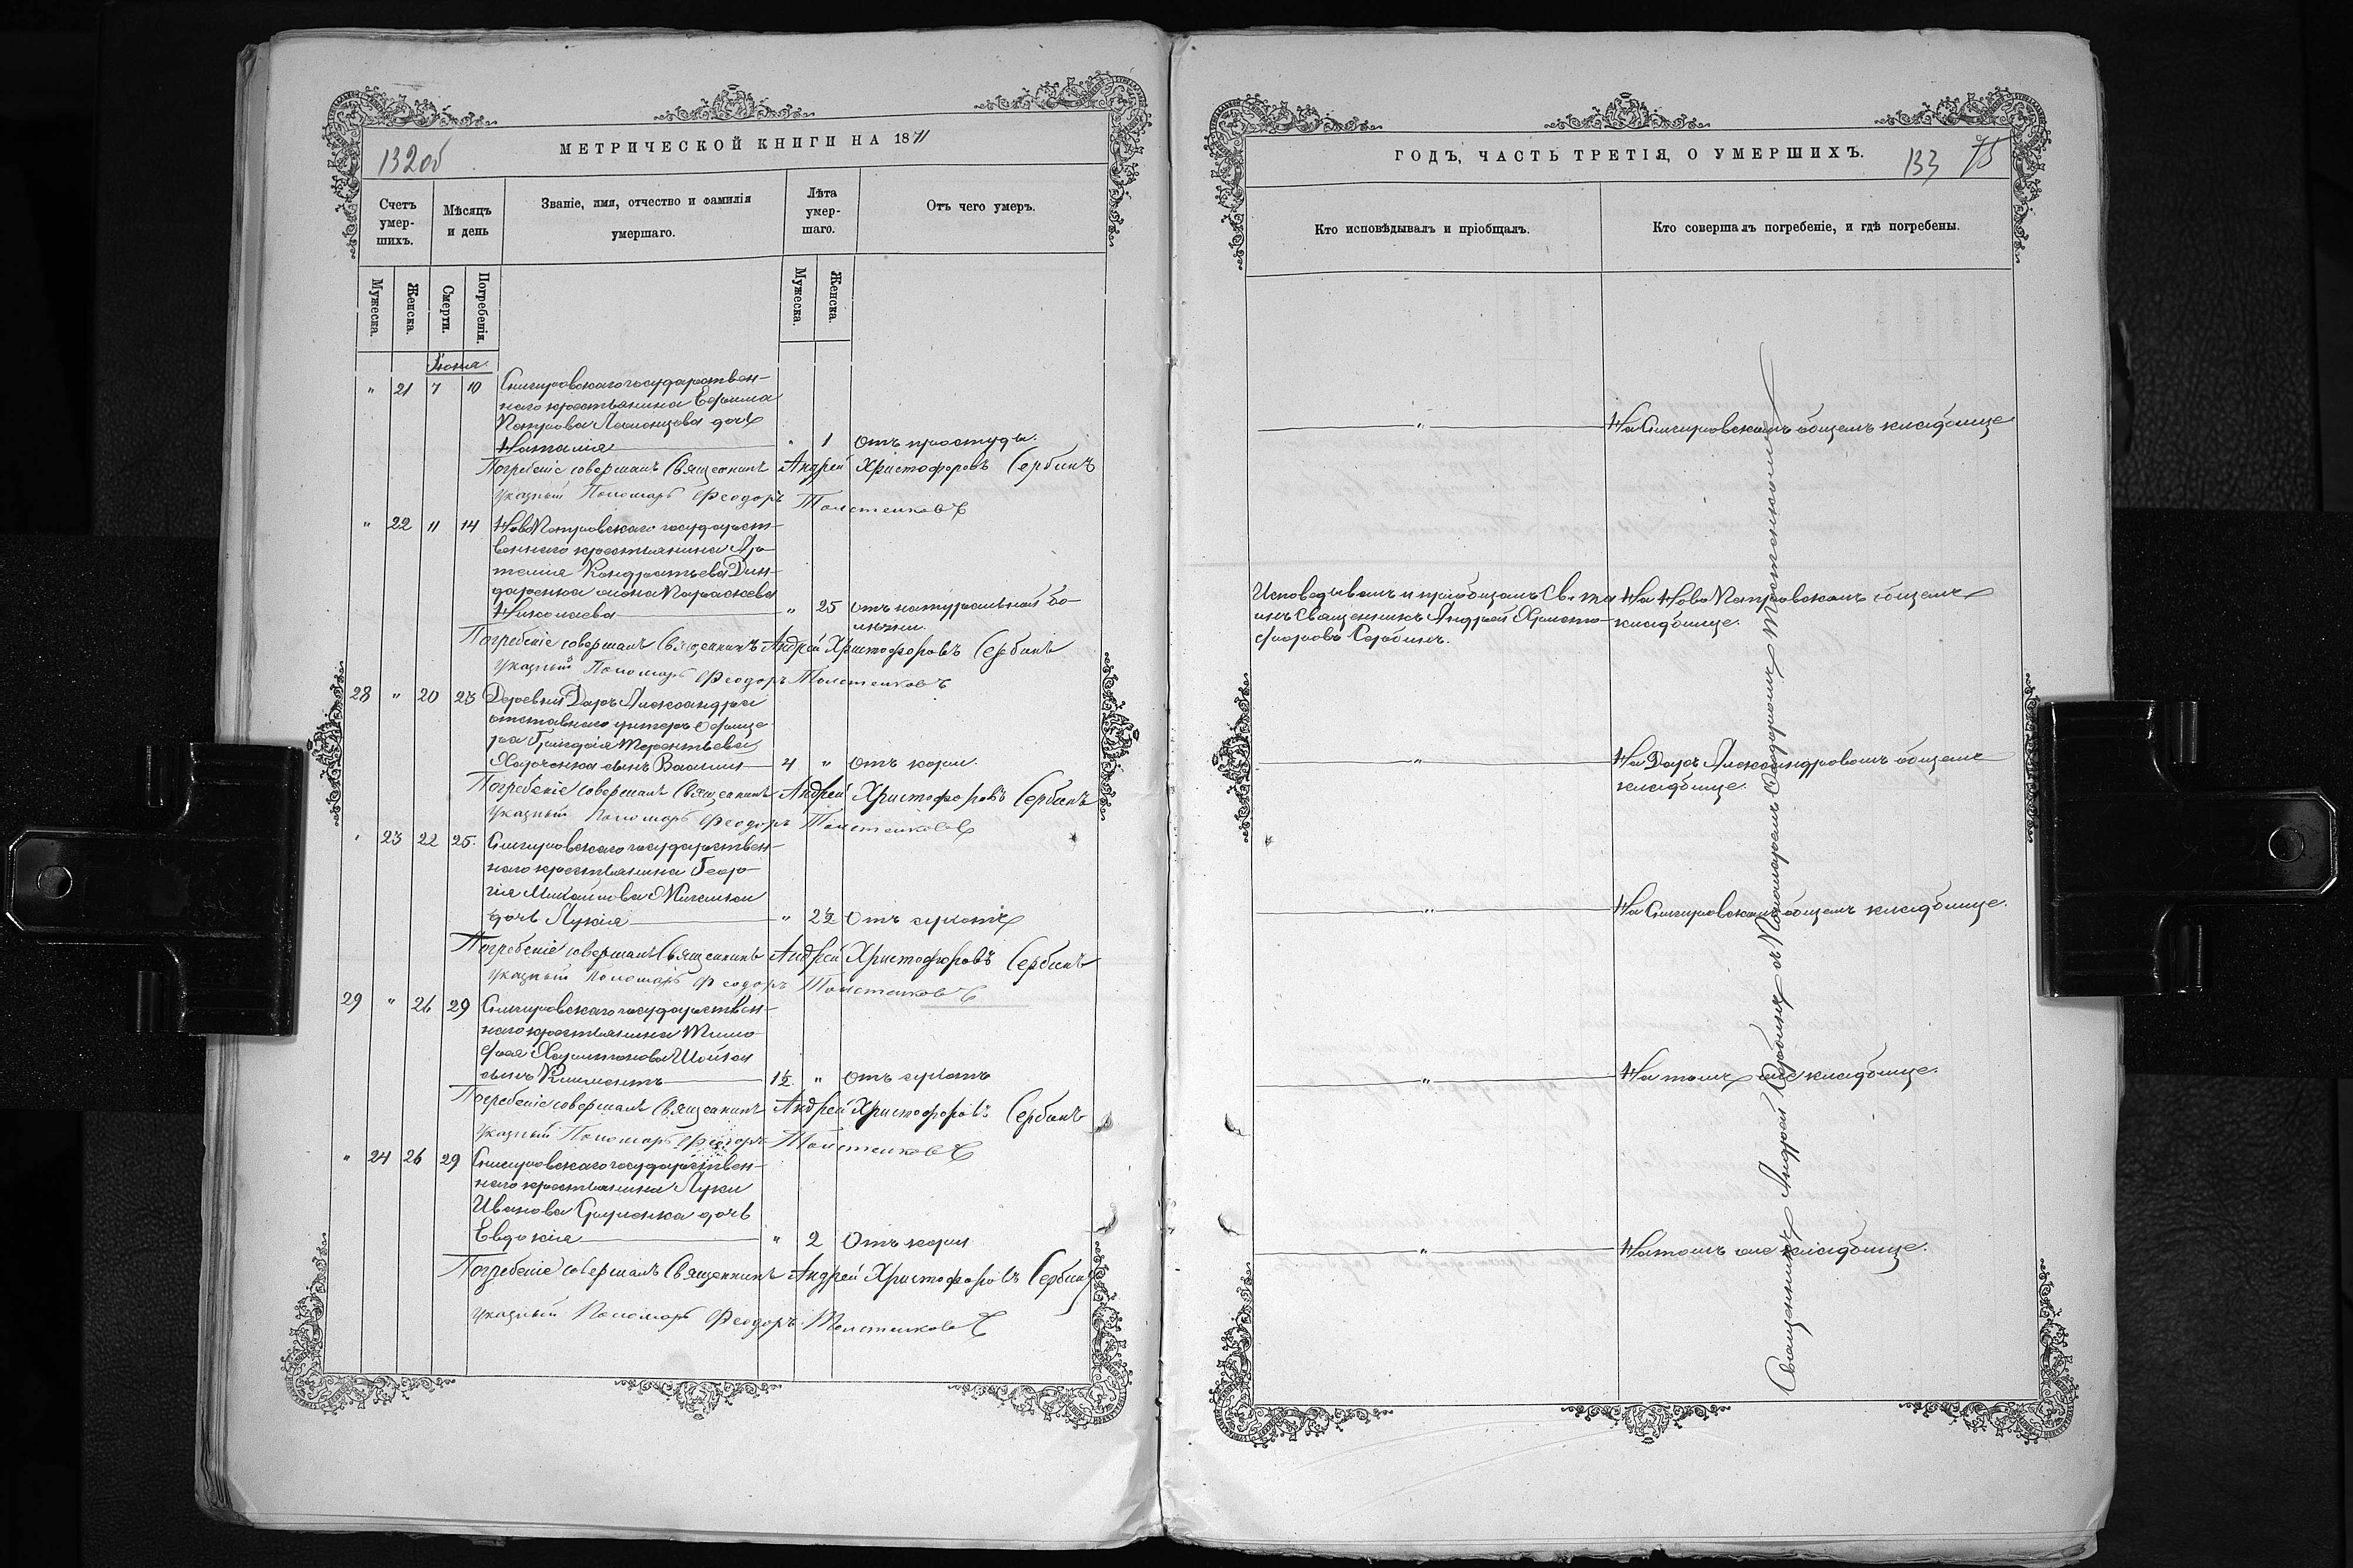 132об
МЕТРИЧЕСКОЙ КНИГИ НА 1871
Счетъ умер-шихъ.
Мѣсяцъ и день
Званіе, имя, отчество и фамилія умершаго.
Лѣта умер-шаго.
Отъ чего умеръ.
Мужеска.
Женска.
Смерти.
Погребенія.
Мужеска.
Женска.
Іюня
" 21 7 10 Снигировскаго государствен-
наго крестьянина Ефима
Петрова дочь
Наталія " 1 Отъ простуды.
Погребеніе совершалъ Священникъ Андрей Христофоровъ Сербинъ
Указный Пономарь Феодоръ Толстенковъ
" 22 11 14 НовоПетровскаго государст-
веннаго крестьянина Ар-
темія Кондратьева Дин-
даренка жена Параскева
Николаева " 25 Отъ натуральной бо-
лезни.
Погребеніе совершалъ Священникъ Андрей Христофоровъ Сербинъ
Указный Пономарь Феодоръ Толстенковъ
28 " 20 23 Деревни Даръ Александра
отставнаго унтеръ Офице-
ра Терентьева
Харченка сынъ Василій 4 " Отъ кори.
Погребеніе совершалъ Священникъ Андрей Христофоровъ Сербинъ
Указный Пономарь Феодоръ Толстенковъ
" 23 22 25. Снигировскаго государствен-
наго крестьянина Геор-
гія Михайлова
дочь Лукія " 2½ Отъ сухотъ
Погребеніе совершалъ Священникъ Андрей Христофоровъ Сербинъ
Указный Пономарь Феодоръ Толстенковъ
29 " 26 29 Снигировскаго государствен-
наго крестьянина Тимо-
фея Харитонова Шойка
сынъ Климентъ 1½ " Отъ сухотъ
Погребеніе совершалъ Священникъ Андрей Христофоровъ Сербинъ
Указный Пономарь Феодоръ Толстенковъ
" 24 26 29 Снигировскаго государствен-
наго крестьянина Луки
Иванова дочь
Евдокія " 2 Отъ кори
Погребеніе совершалъ Священникъ Андрей Христофоровъ Сербинъ
Указный Пономарь Феодоръ Толстенковъ
ГОДЪ, ЧАСТЬ ТРЕТІЯ, О УМЕРШИХЪ.
133 75
Кто исповѣдывалъ и пріобщалъ.
Кто совершалъ погребеніе, и гдѣ погребены.
" На Снигировскомъ общемъ кладбище
Исповедывалъ и приобщалъ Св. та- На НовоПетровскомъ общемъ
инъ Священникъ Андрей Христо- кладбище.
форовъ Сербинъ.
" На Даръ Александровомъ общемъ
кладбище.
" На Снигировскомъ общемъ кладбище.
" На томъ же кладбище.
" На томъ же кладбище.
Священникъ Андрей Сербинъ съ Пономаремъ Феодоромъ Толстенковымъ